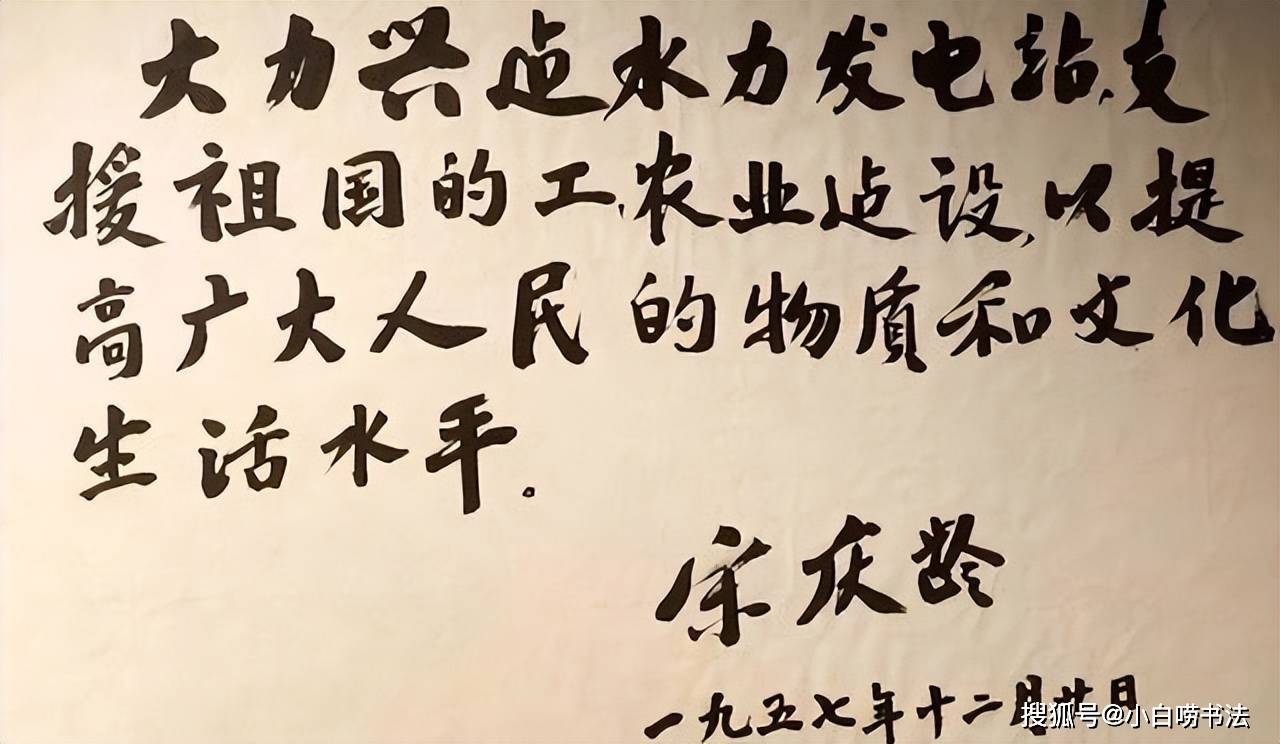 大力兴迠水力发电站,支
援祖国的工、农业迠设,以提
高广大人民的物质和文化
生活水平。
宋庆龄
一九五七年十二月廿日
搜狐号@小白唠书法